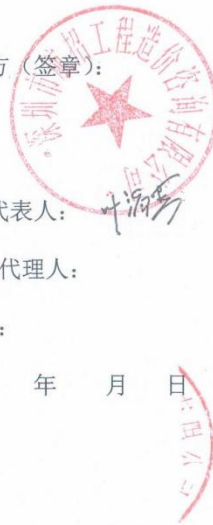 方（签章）：
深圳市 工程造价咨询有限公司
代表人：
代理人：
：
年 月 日
限公司